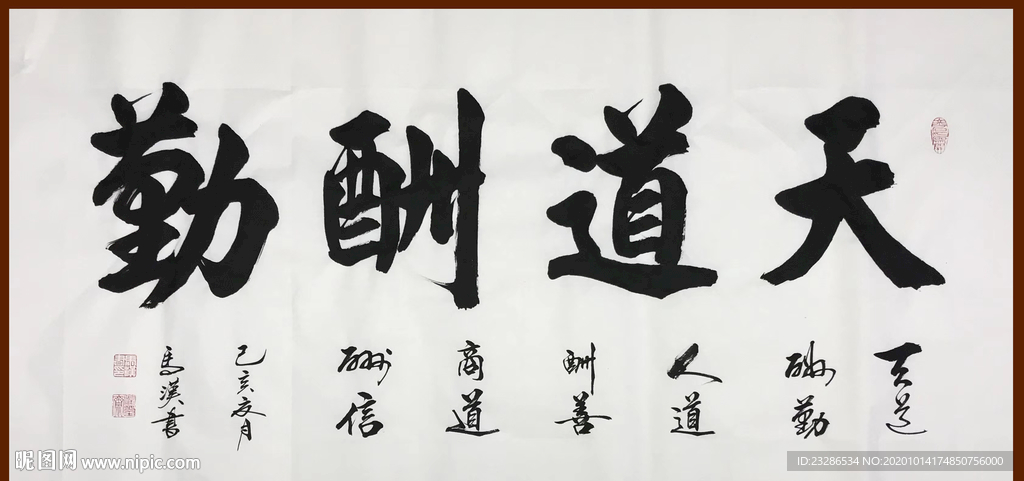 天道酬勤
天道
酬勤
人道
酬善
商道
酬信
己亥夏月
馬漢書
昵图网 www.nipic.com
ID:23286534 NO:20201014174850756000